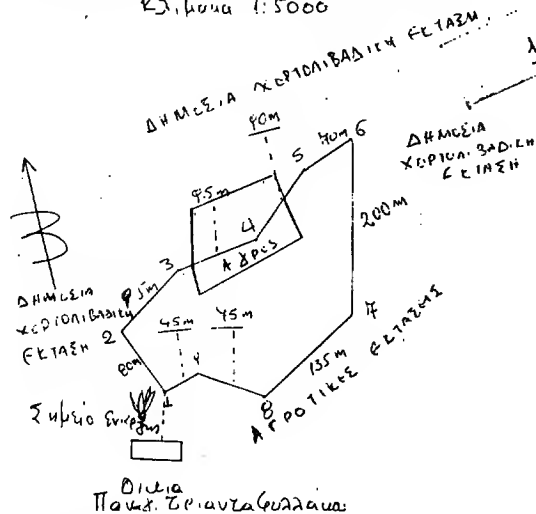 Κλίμακα 1:5000
ΔΗΜΟΣΙΑ ΧΟΡΤΟΛΙΒΑΔΙΚΗ ΕΚΤΑΣΗ
90m
5
70m
6
ΔΗΜΟΣΙΑ
ΧΟΡΤΟΛΙΒΑΔΙΚΗ
ΕΚΤΑΣΗ
95m
4
ΑΓΡΟΣ
200m
3
ΔΗΜΟΣΙΑ
ΧΟΡΤΟΛΙΒΑΔΙΚΗ
ΕΚΤΑΣΗ
2
45m
75m
7
80m
1
9
135m
8
ΑΓΡΟΤΙΚΕΣ ΕΚΤΑΣΕΙΣ
Σημείο
Οικία
Παναγ. Τριανταφυλλάκα